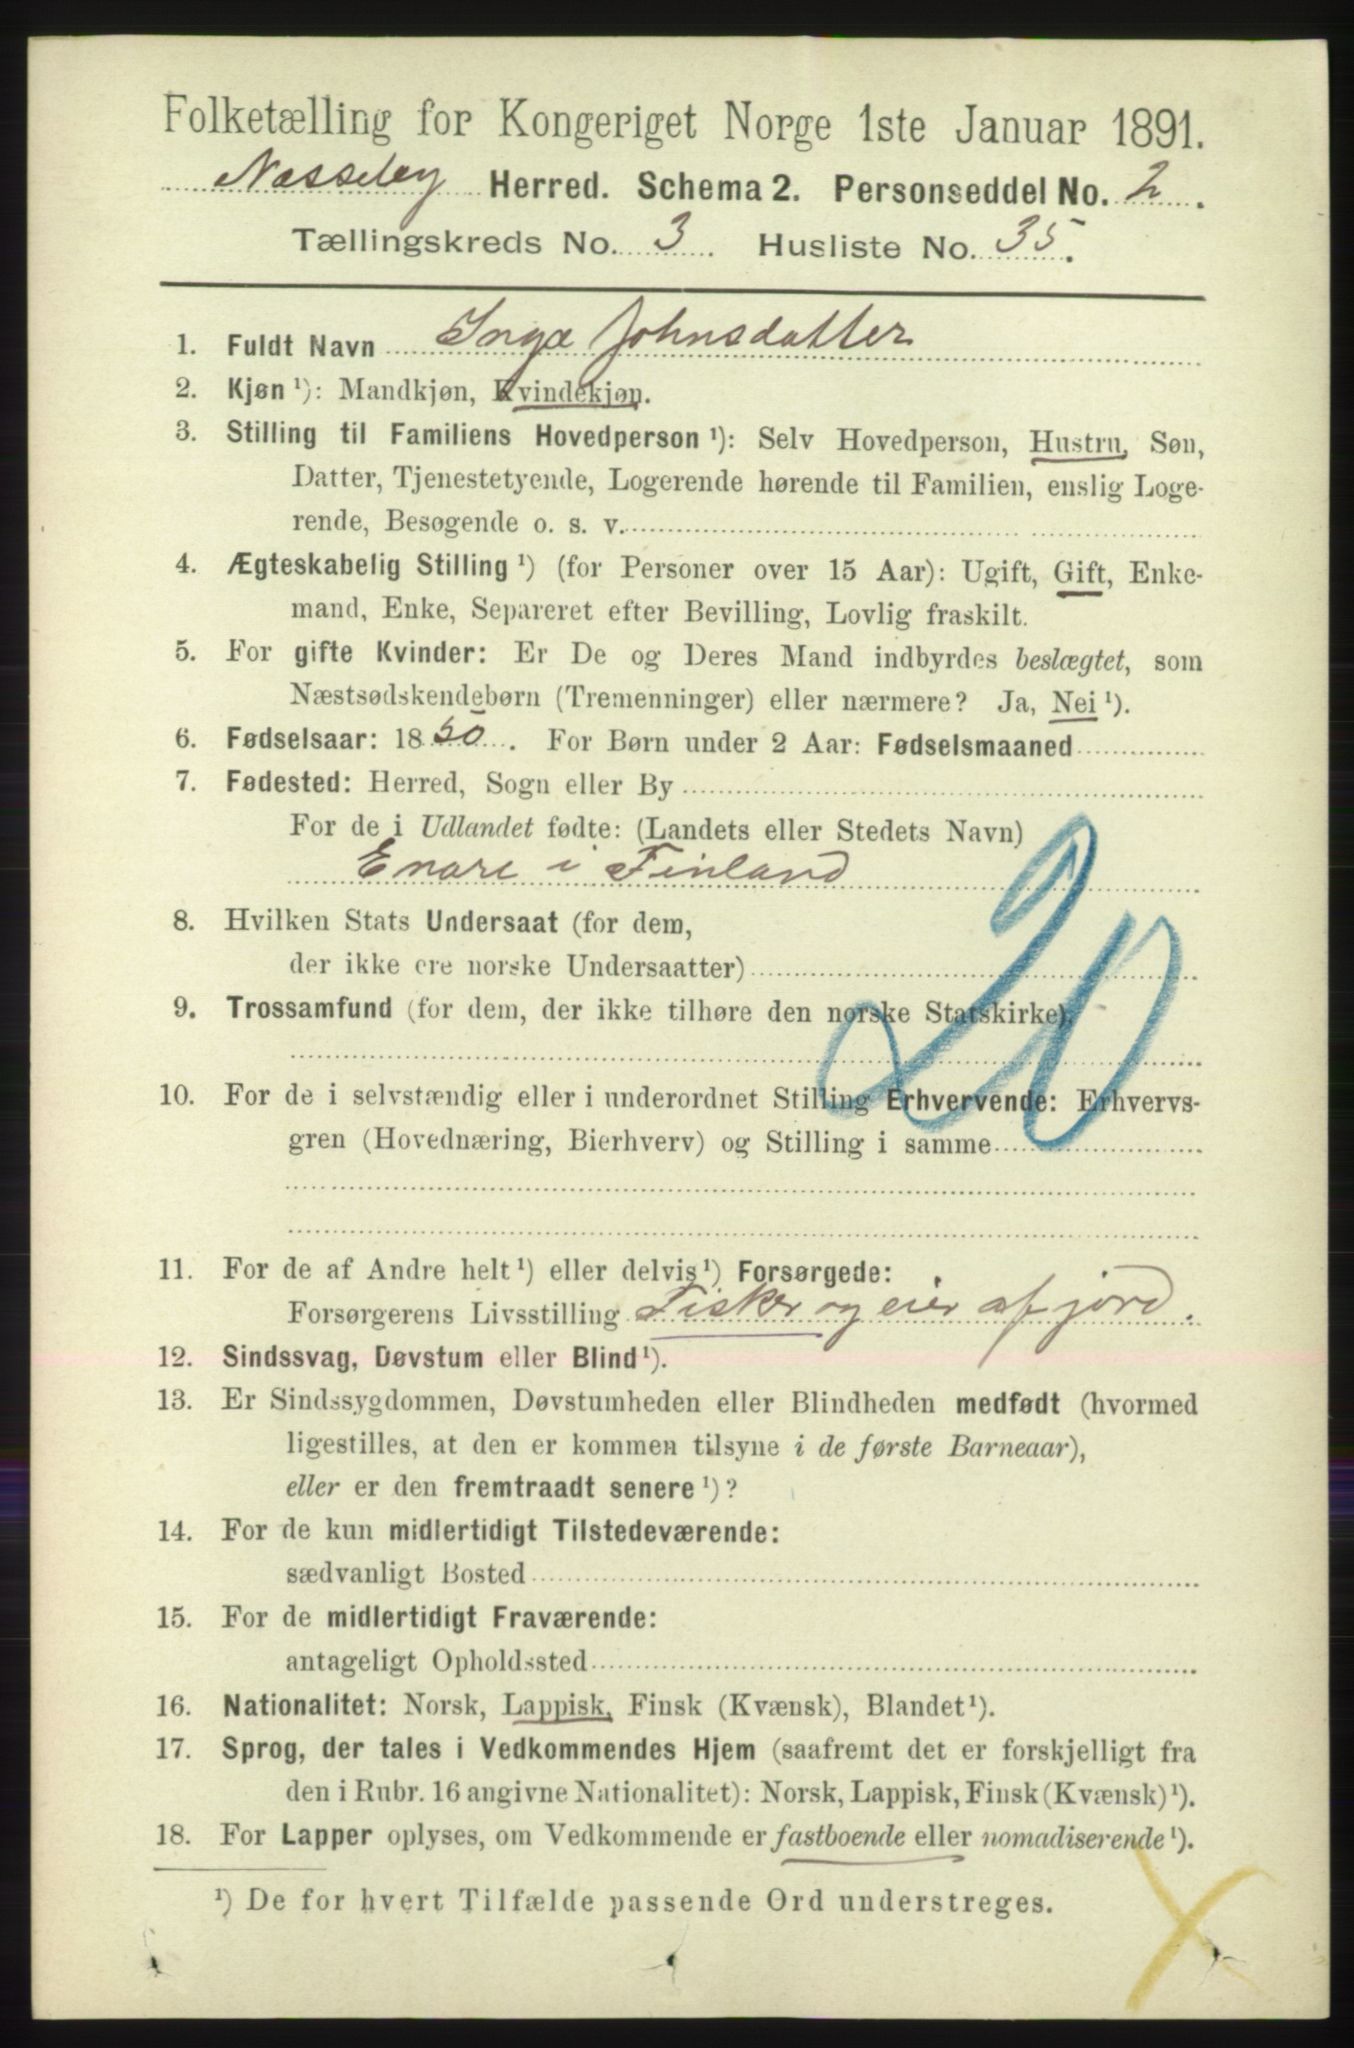 Folketælling for Kongeriget Norge 1ste Januar 1891.
Næsseby Herred. Schema 2. Personseddel No. 2.
Tællingskreds No. 3. Husliste No. 35.
1. Fuldt Navn Inga Johnsdatter
2. Kjøn ¹): Mandkjøn, Kvindekjøn.
3. Stilling til Familiens Hovedperson ¹): Selv Hovedperson, Hustru, Søn,
Datter, Tjenestetyende, Logerende hørende til Familien, enslig Loge-
rende, Besøgende o. s. v.
4. Ægteskabelig Stilling ¹) (for Personer over 15 Aar): Ugift, Gift, Enke-
mand, Enke, Separeret efter Bevilling, Lovlig fraskilt.
5. For gifte Kvinder: Er De og Deres Mand indbyrdes beslægtet, som
Næstsødskendebørn (Tremenninger) eller nærmere? Ja, Nei ¹).
6. Fødselsaar: 1850. For Børn under 2 Aar: Fødselsmaaned
7. Fødested: Herred, Sogn eller By
For de i Udlandet fødte: (Landets eller Stedets Navn)
Enare i Finland
20
8. Hvilken Stats Undersaat (for dem,
der ikke ere norske Undersaatter)
9. Trossamfund (for dem, der ikke tilhøre den norske Statskirke).
10. For de i selvstændig eller i underordnet Stilling Erhvervende: Erhvervs-
gren (Hovednæring, Bierhverv) og Stilling i samme
11. For de af Andre helt ¹) eller delvis ¹) Forsørgede:
Forsørgerens Livsstilling Fisker og eier af jord.
12. Sindssvag, Døvstum eller Blind ¹).
13. Er Sindssygdommen, Døvstumheden eller Blindheden medfødt (hvormed
ligestilles, at den er kommen tilsyne i de første Barneaar),
eller er den fremtraadt senere ¹)?
14. For de kun midlertidigt Tilstedeværende:
sædvanligt Bosted
15. For de midlertidigt Fraværende:
antageligt Opholdssted
16. Nationalitet: Norsk, Lappisk, Finsk (Kvænsk), Blandet ¹).
17. Sprog, der tales i Vedkommendes Hjem (saafremt det er forskjelligt fra
den i Rubr. 16 angivne Nationalitet): Norsk, Lappisk, Finsk (Kvænsk) ¹).
18. For Lapper oplyses, om Vedkommende er fastboende eller nomadiserende ¹).
¹) De for hvert Tilfælde passende Ord understreges.